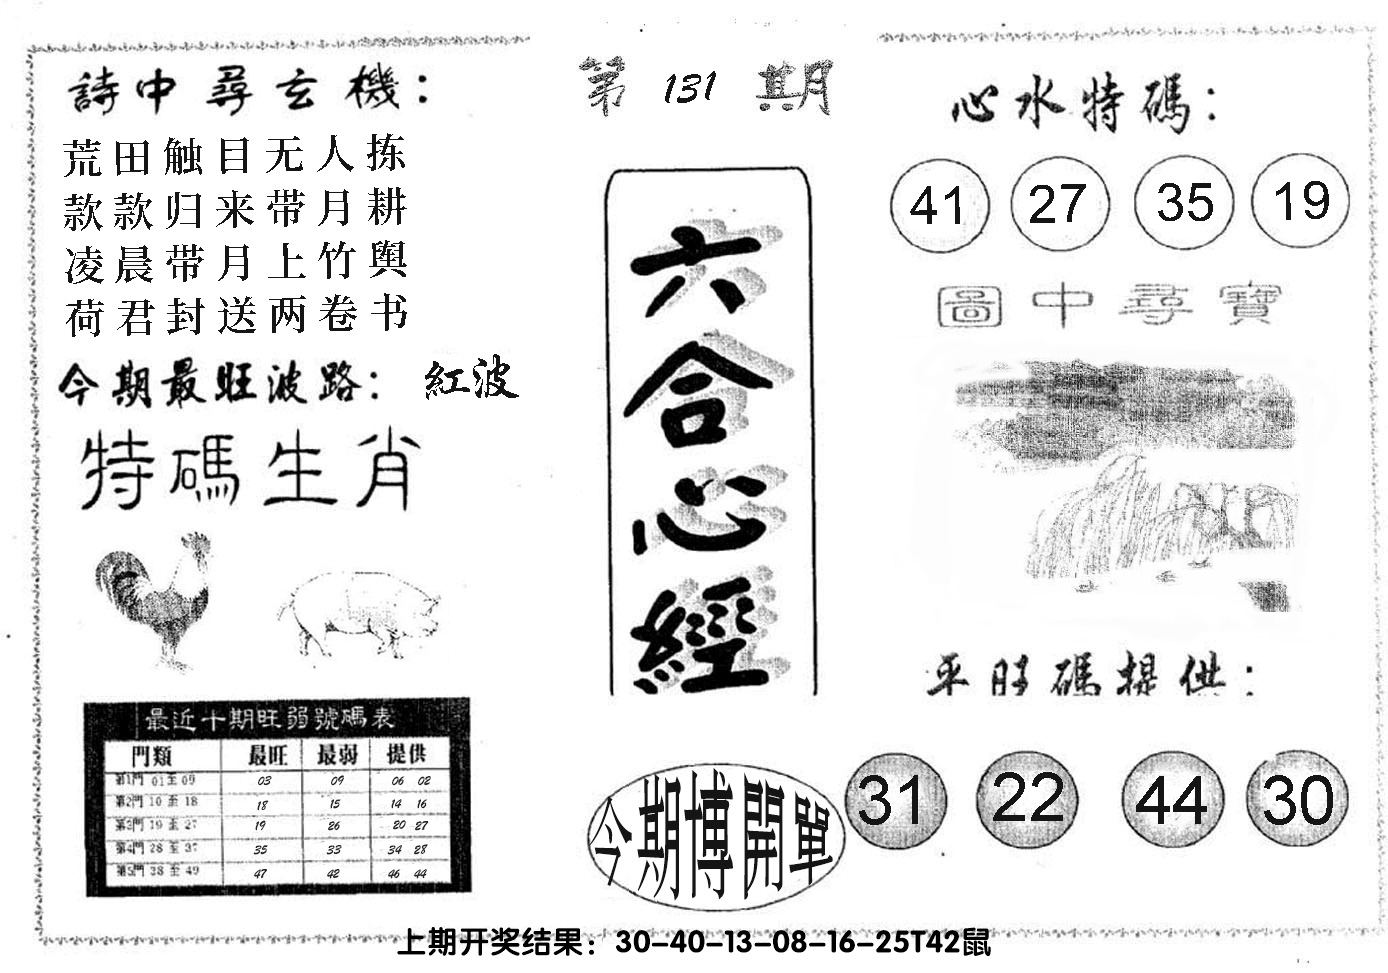 詩中尋玄機：
荒田触目无人拣
款款归来带月耕
凌晨带月上竹舆
荷君封送两卷书
今期最旺波路： 紅波
特碼生肖
最近十期旺弱號碼表
門類 最旺 最弱 提供
第1門 01至09 03 09 06 02
第2門 10至18 18 15 14 16
第3門 19至27 19 26 20 27
第4門 28至37 35 33 34 28
第5門 38至49 47 42 46 44
第131期
六合心經
今期博開單
心水特碼：
41 27 35 19
圖中尋寶
平旺碼提供：
31 22 44 30
上期开奖结果：30-40-13-08-16-25T42鼠